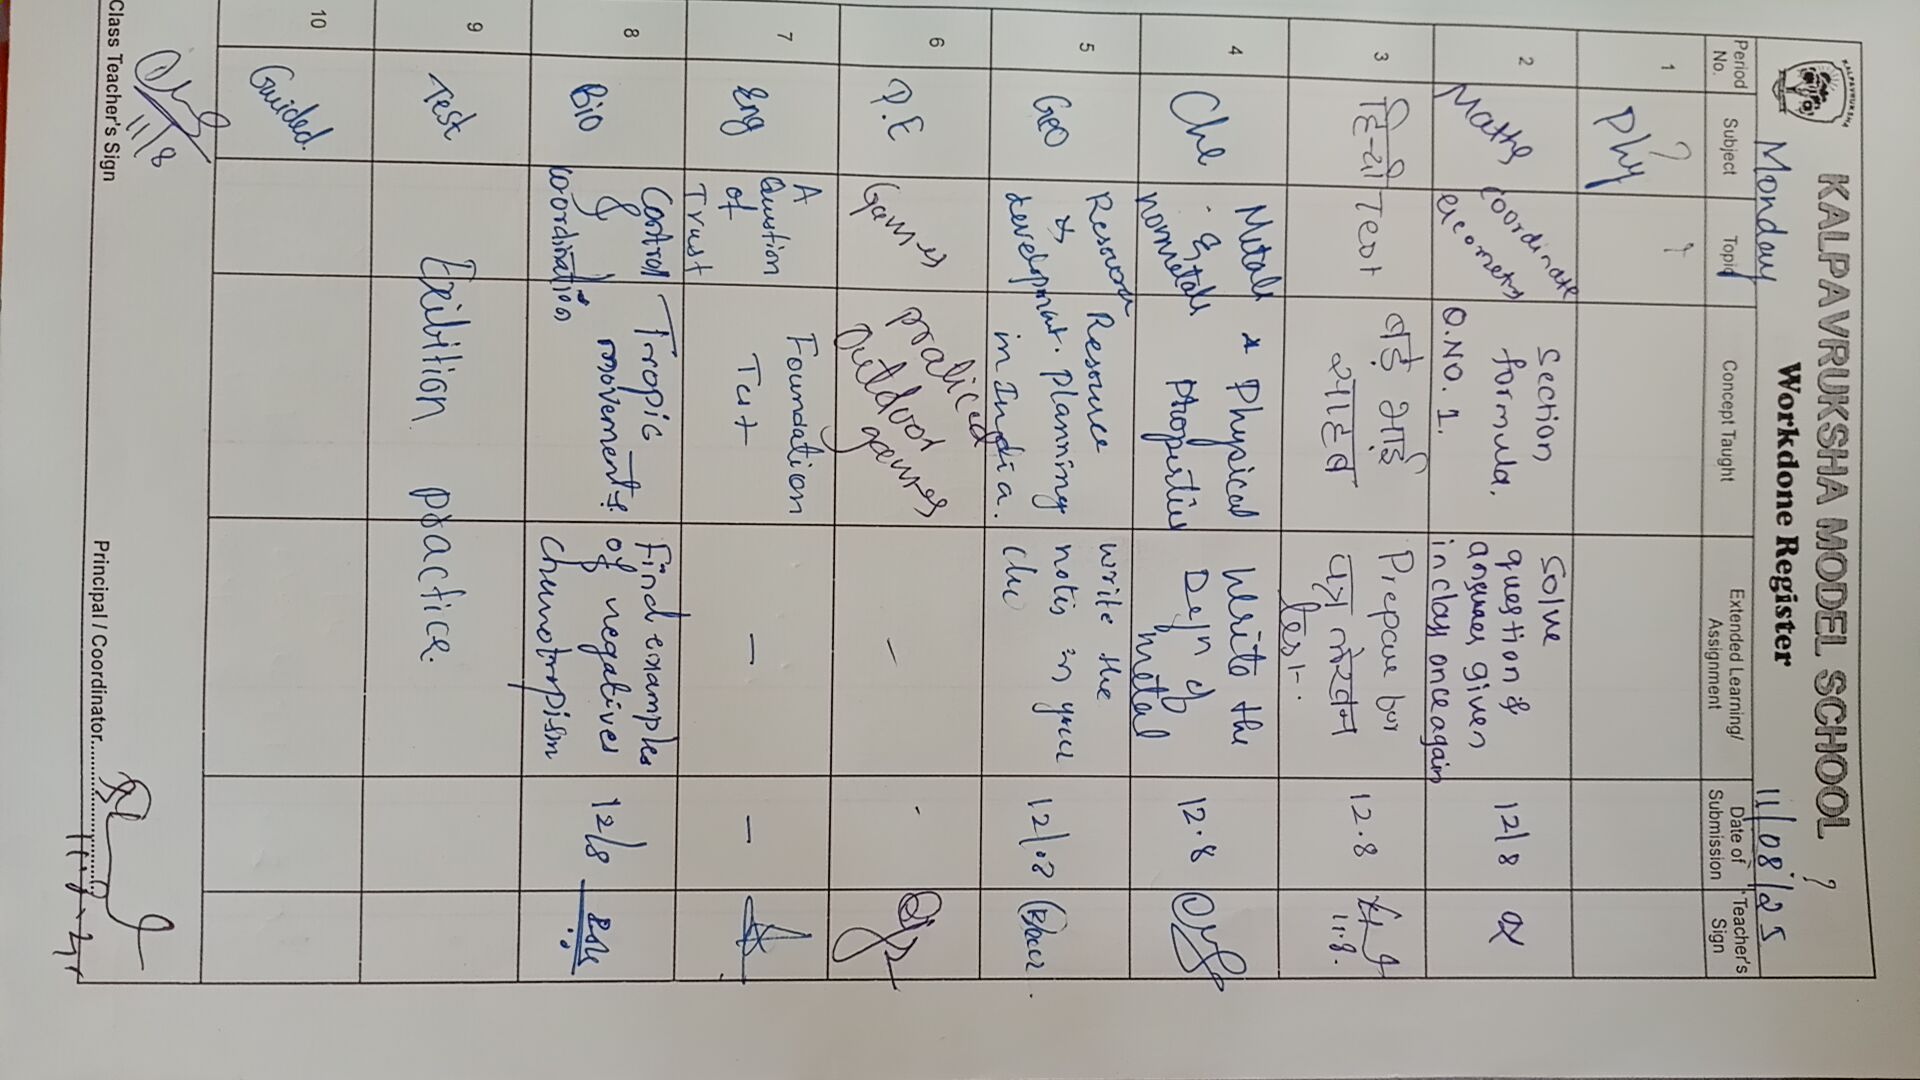 KALPAVRUKSHA
KALPAVRUKSHA MODEL SCHOOL
Workdone Register
?
Monday
11/08/25
Period No.
Subject
Topic
Concept Taught
Extended Learning/ Assignment
Date of Submission
Teacher's Sign
1
?
Phy
?
2
Maths
Coordinate
Geometry
Section
formula.
Q.NO. 1.
Solve
question &
answer given
in class once again
12/8
3
हिन्दी
Test
बड़े भाई
साहब
Prepare for
test.
12.8
11.8.
4
Che
Metals
&
nonmetals
* Physical
Properties
Write the
Defn of
metal
12.8
5
Geo
Resource
&
development.
Resource
planning
in India.
write the
notes in your
12/08
6
P.E
Games
praticed
Outdoor
games
-
-
7
Eng
A
Question
of
Trust
Foundation
Test
-
-
8
Bio
Control
&
coordination
Tropic
movements
Find examples
of negatives
chemotropism
12/8
9
Test
Exibition practice.
10
Guided.
11/8
Class Teacher's Sign
Principal / Coordinator